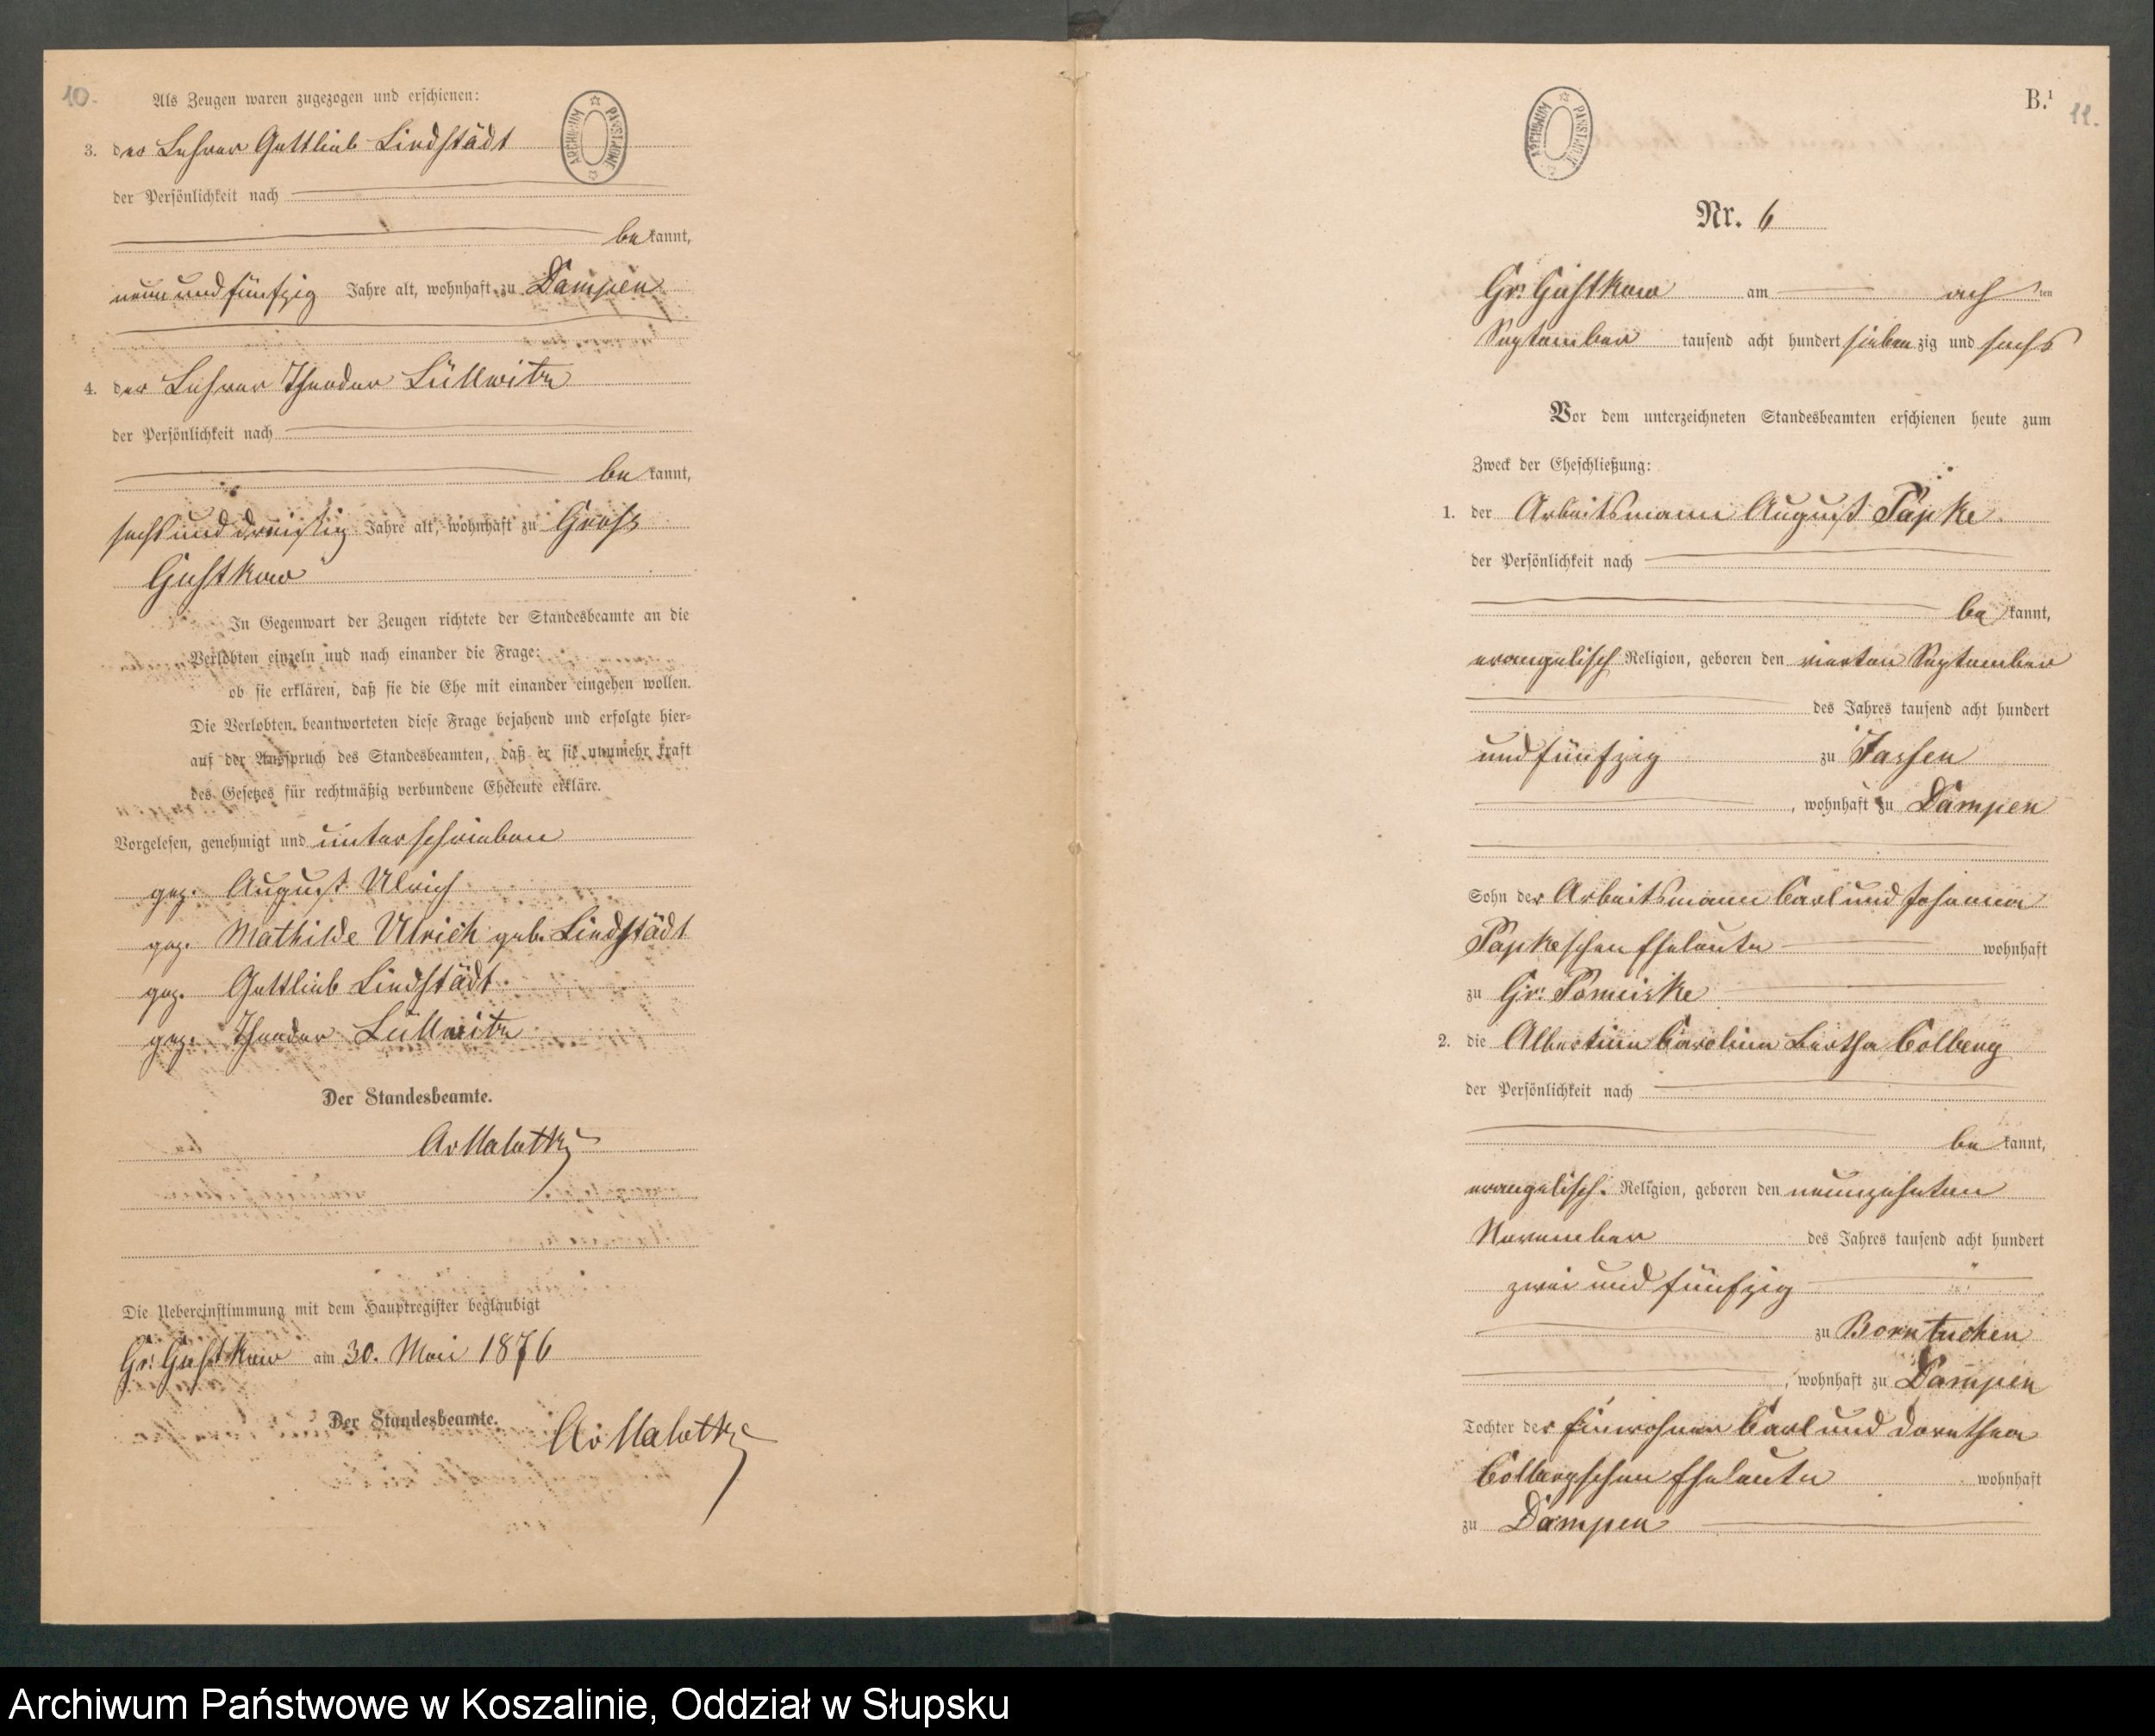 10.
Als Zeugen waren zugezogen und erschienen:
3. der Lehrer Gottlieb Lindstädt
der Persönlichkeit nach
bekannt,
neun und fünfzig Jahre alt, wohnhaft zu Dampen
4. der Lehrer Theodor Lüllwitz
der Persönlichkeit nach
bekannt,
sechs und dreißig Jahre alt, wohnhaft zu Gross
Gustkow
In Gegenwart der Zeugen richtete der Standesbeamte an die
Verlobten einzeln und nach einander die Frage:
ob sie erklären, daß sie die Ehe mit einander eingehen wollen.
Die Verlobten beantworteten diese Frage bejahend und erfolgte hier-
auf der Ausspruch des Standesbeamten, daß er sie nunmehr kraft
des Gesetzes für rechtmäßig verbundene Eheleute erkläre.
Vorgelesen, genehmigt und unterschrieben
gez. August Ulrich
gez. Mathilde Ulrich geb. Lindstädt
gez. Gottlieb Lindstädt
gez. Theodor Lüllwitz
Der Standesbeamte.
Die Uebereinstimmung mit dem Hauptregister beglaubigt
Gr. Gustkow am 30. Mai 1876
Der Standesbeamte.
ARCHIWUM PAŃSTWOWE
B.¹
11.
ARCHIWUM PAŃSTWOWE
Nr. 6
Gr. Gustkow am achten
September tausend acht hundert siebenzig und sechs
Vor dem unterzeichneten Standesbeamten erschienen heute zum
Zweck der Eheschließung:
1. der Arbeitsmann August Papke
der Persönlichkeit nach
bekannt,
evangelisch Religion, geboren den vierten September
des Jahres tausend acht hundert
und fünfzig zu Jassen
, wohnhaft zu Dampen
Sohn der Arbeitsmann Carl und Johanna
Papkeschen Eheleute wohnhaft
zu Gr. Pomeiske
2. die Albertine Caroline Bertha Colberg
der Persönlichkeit nach
bekannt,
evangelisch. Religion, geboren den neunzehnten
November des Jahres tausend acht hundert
zwei und fünfzig
zu Borntuchen
, wohnhaft zu Dampen
Tochter der Einwohner Carl und Dorothea
Colbergschen Eheleute wohnhaft
zu Dampen
Archiwum Państwowe w Koszalinie, Oddział w Słupsku